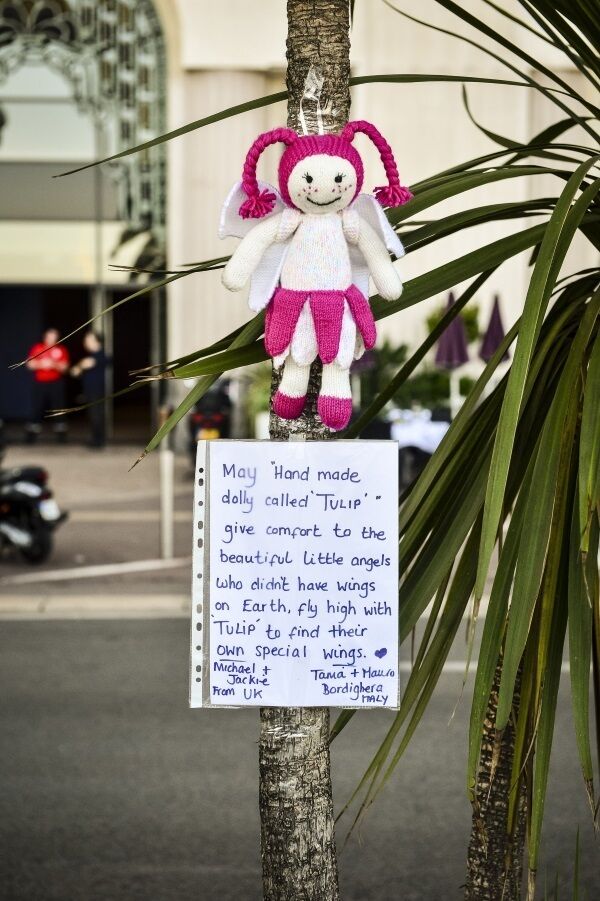 May "Hand made
dolly called 'TULIP' "
give comfort to the
beautiful little angels
who didn't have wings
on Earth, fly high with
'TULIP' to find their
own special wings. ♥
Michael + 
Jackie
From UK
Tania + Mauro
Bordighera
ITALY